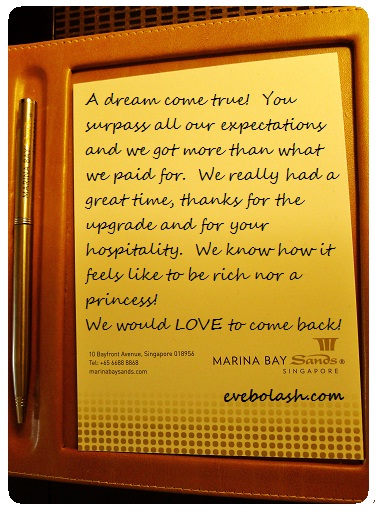 MARINA BAY
A dream come true! You
surpass all our expectations
and we got more than what
we paid for. We really had a
great time, thanks for the
upgrade and for your
hospitality. We know how it
feels like to be rich nor a
princess!
We would LOVE to come back!
10 Bayfront Avenue, Singapore 018956
Tel: +65 6688 8868
marinabaysands.com
MARINA BAY Sands®
SINGAPORE
evebolash.com